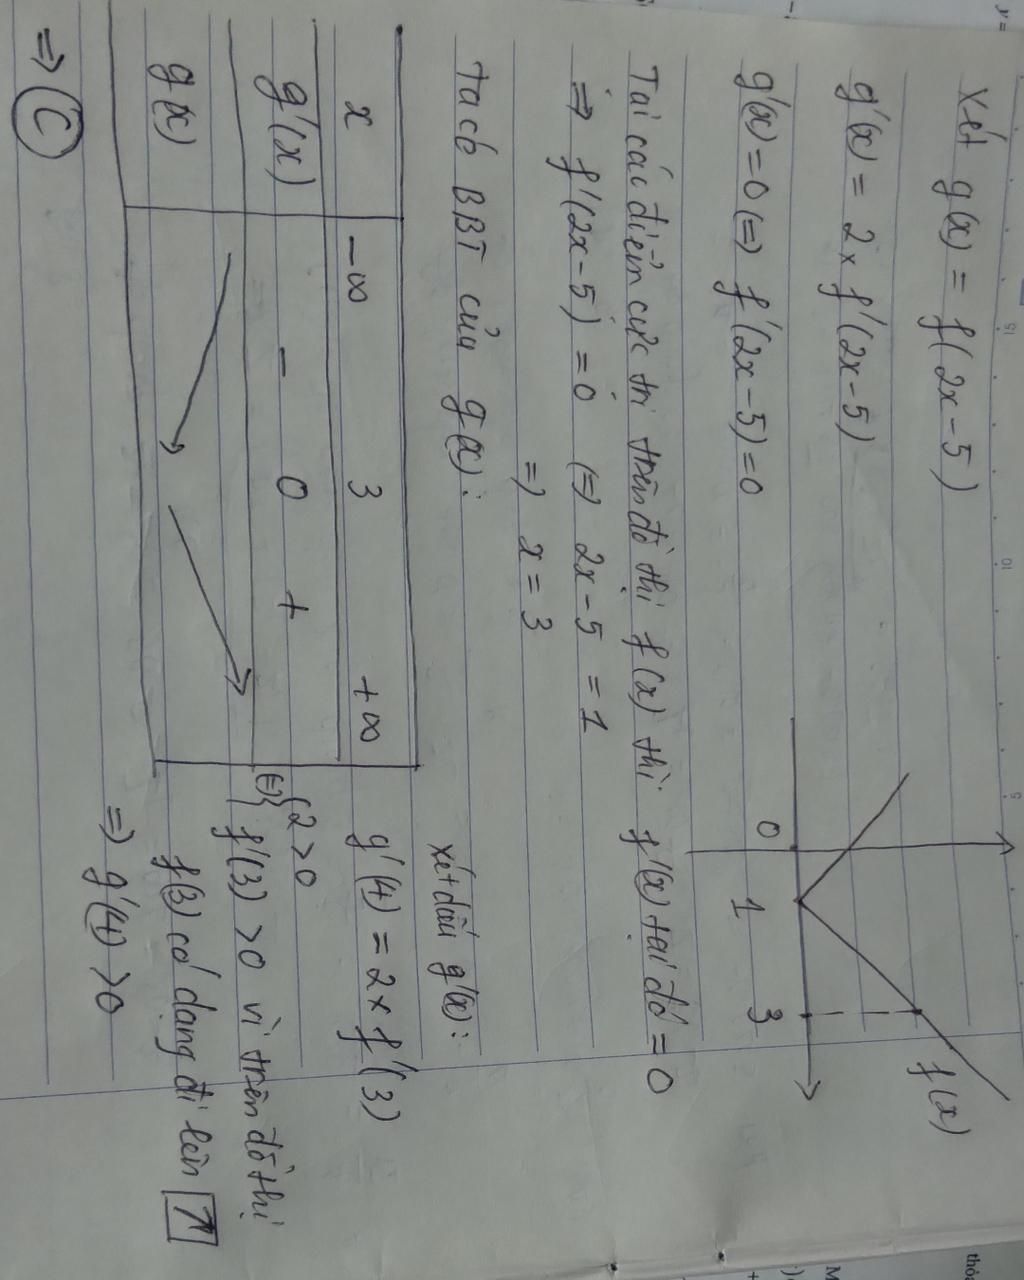 Xét g(x) = f(2x-5)
g'(x) = 2 x f'(2x-5)
g'(x) = 0 (=) f'(2x-5) = 0
0 1 3 f(x)
Tại các điểm cực trị trên đồ thị f(x) thì f'(x) tại đó = 0
=> f'(2x-5) = 0 (=) 2x-5 = 1
=> x = 3
Ta có BBT của g(x):
x -∞ 3 +∞
g'(x) - 0 +
g(x)
xét dấu g'(x):
g'(4) = 2 x f'(3)
(=) { 2 > 0
f'(3) > 0 vì trên đồ thị
f(3) có dạng đi lên ↗
=> g'(4) > 0
=> C